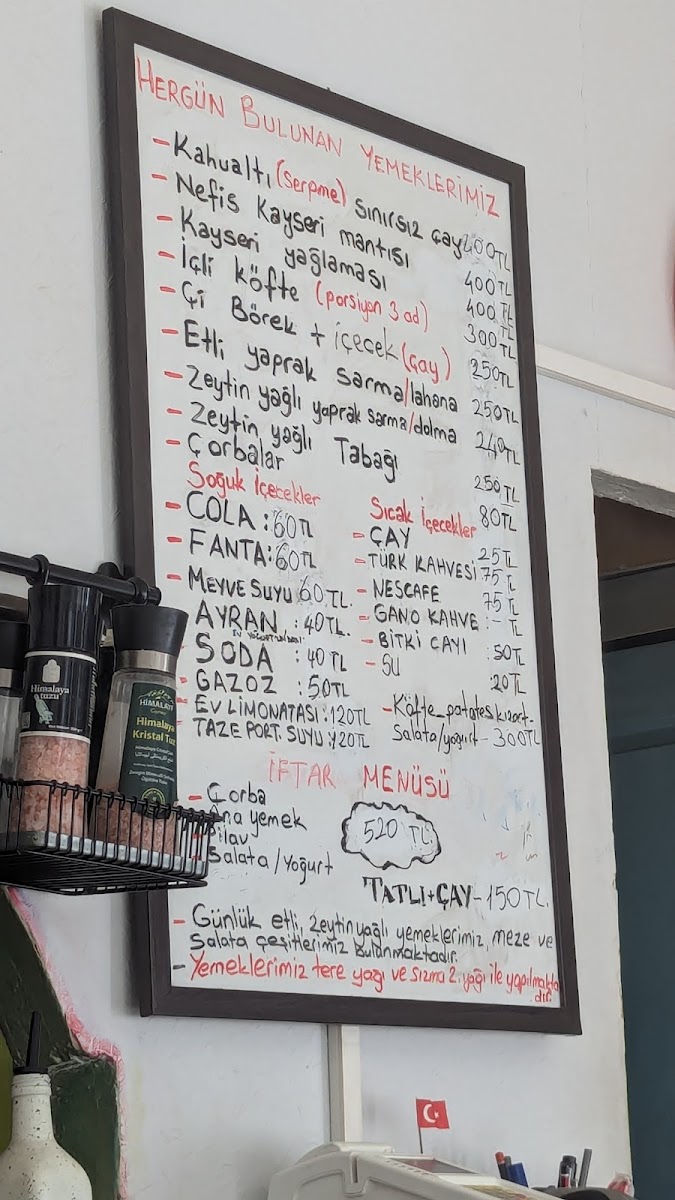 HERGÜN BULUNAN YEMEKLERİMİZ
- Kahvaltı (serpme) sınırsız çay 400TL
- Nefis Kayseri mantısı 400TL
- Kayseri yağlaması 400TL
- İçli köfte (porsiyon 3 ad) 300TL
- Çi Börek + içecek (çay) 250TL
- Etli yaprak sarma/lahana 250TL
- Zeytin yağlı yaprak sarma/dolma 240TL
- Zeytin yağlı Tabağı 250TL
- Çorbalar 80TL
Soğuk İçecekler
- COLA : 60TL
- FANTA: 60TL
- MEYVE SUYU 60TL.
AYRAN : 40TL.
EV YOĞURTUNDAN
- SODA : 40TL
- GAZOZ : 50TL
- EV LİMONATASI : 120TL
- TAZE PORT. SUYU : 120TL
Sıcak İçecekler
- ÇAY 25TL
- TÜRK KAHVESİ 75TL
- NESCAFE 75TL
- GANO KAHVE : - TL
- BİTKİ ÇAYI : 50TL
- SU 20TL
- Köfte_patates kızart-
Salata/yoğurt - 300TL
İFTAR MENÜSÜ
- Çorba
- Ana yemek
- Pilav
- Salata/Yoğurt
520 TL
TATLI+ÇAY - 150TL.
- Günlük etli, zeytinyağlı yemeklerimiz, meze ve
Salata çeşitlerimiz bulunmaktadır.
- Yemeklerimiz tere yağı ve sızma z. yağı ile yapılmakta
dır.
Himalaya
tuzu
HIMALAYA
Himalaya
Kristal Tuz